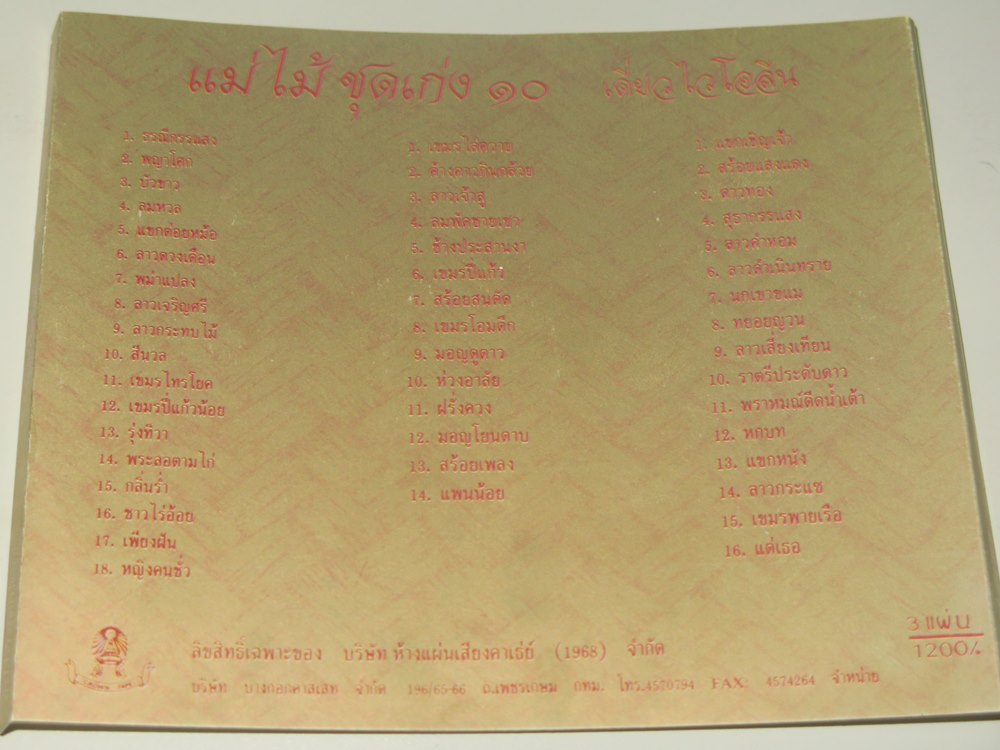 แม่ไม้ ชุดเก่ง ๑๐ เดี่ยวไวโอลิน
1. ธรณีกรรแสง
2. พญาโศก
3. บัวขาว
4. ลมหวล
5. แขกต่อยหม้อ
6. ลาวดวงเดือน
7. พม่าแปลง
8. ลาวเจริญศรี
9. ลาวกระทบไม้
10. สีนวล
11. เขมรไทรโยค
12. เขมรปี่แก้วน้อย
13. รุ่งทิวา
14. พระลอตามไก่
15. กลิ่นร่ำ
16. ชาวไร่อ้อย
17. เพียงฝัน
18. หญิงคนชั่ว
1. เขมรไล่ควาย
2. ค้างคาวกินกล้วย
3. ลาวเจ้าสู
4. ลมพัดชายเขา
5. ช้างประสานงา
6. เขมรปี่แก้ว
7. สร้อยสนตัด
8. เขมรโอมตึก
9. มอญดูดาว
10. ห่วงอาลัย
11. ฝรั่งควง
12. มอญโยนดาบ
13. สร้อยเพลง
14. แพนน้อย
1. แขกเชิญเจ้า
2. สร้อยแสงแดง
3. ดาวทอง
4. สุธากรรแสง
5. ลาวคำหอม
6. ลาวดำเนินทราย
7. นกเขาขแม
8. ทยอยญวน
9. ลาวเสี่ยงเทียน
10. ราตรีประดับดาว
11. พราหมณ์ดีดน้ำเต้า
12. หกบท
13. แขกหนัง
14. ลาวกระแซ
15. เขมรพายเรือ
16. แด่เธอ
3 แผ่น
1200%
ลิขสิทธิ์เฉพาะของ บริษัท ห้างแผ่นเสียงคาเธ่ย์ (1968) จำกัด
บริษัท บางกอกคาสเสท จำกัด 196/65-66 ถ.เพชรเกษม กทม. โทร.4570794 FAX: 4574264 จำหน่าย